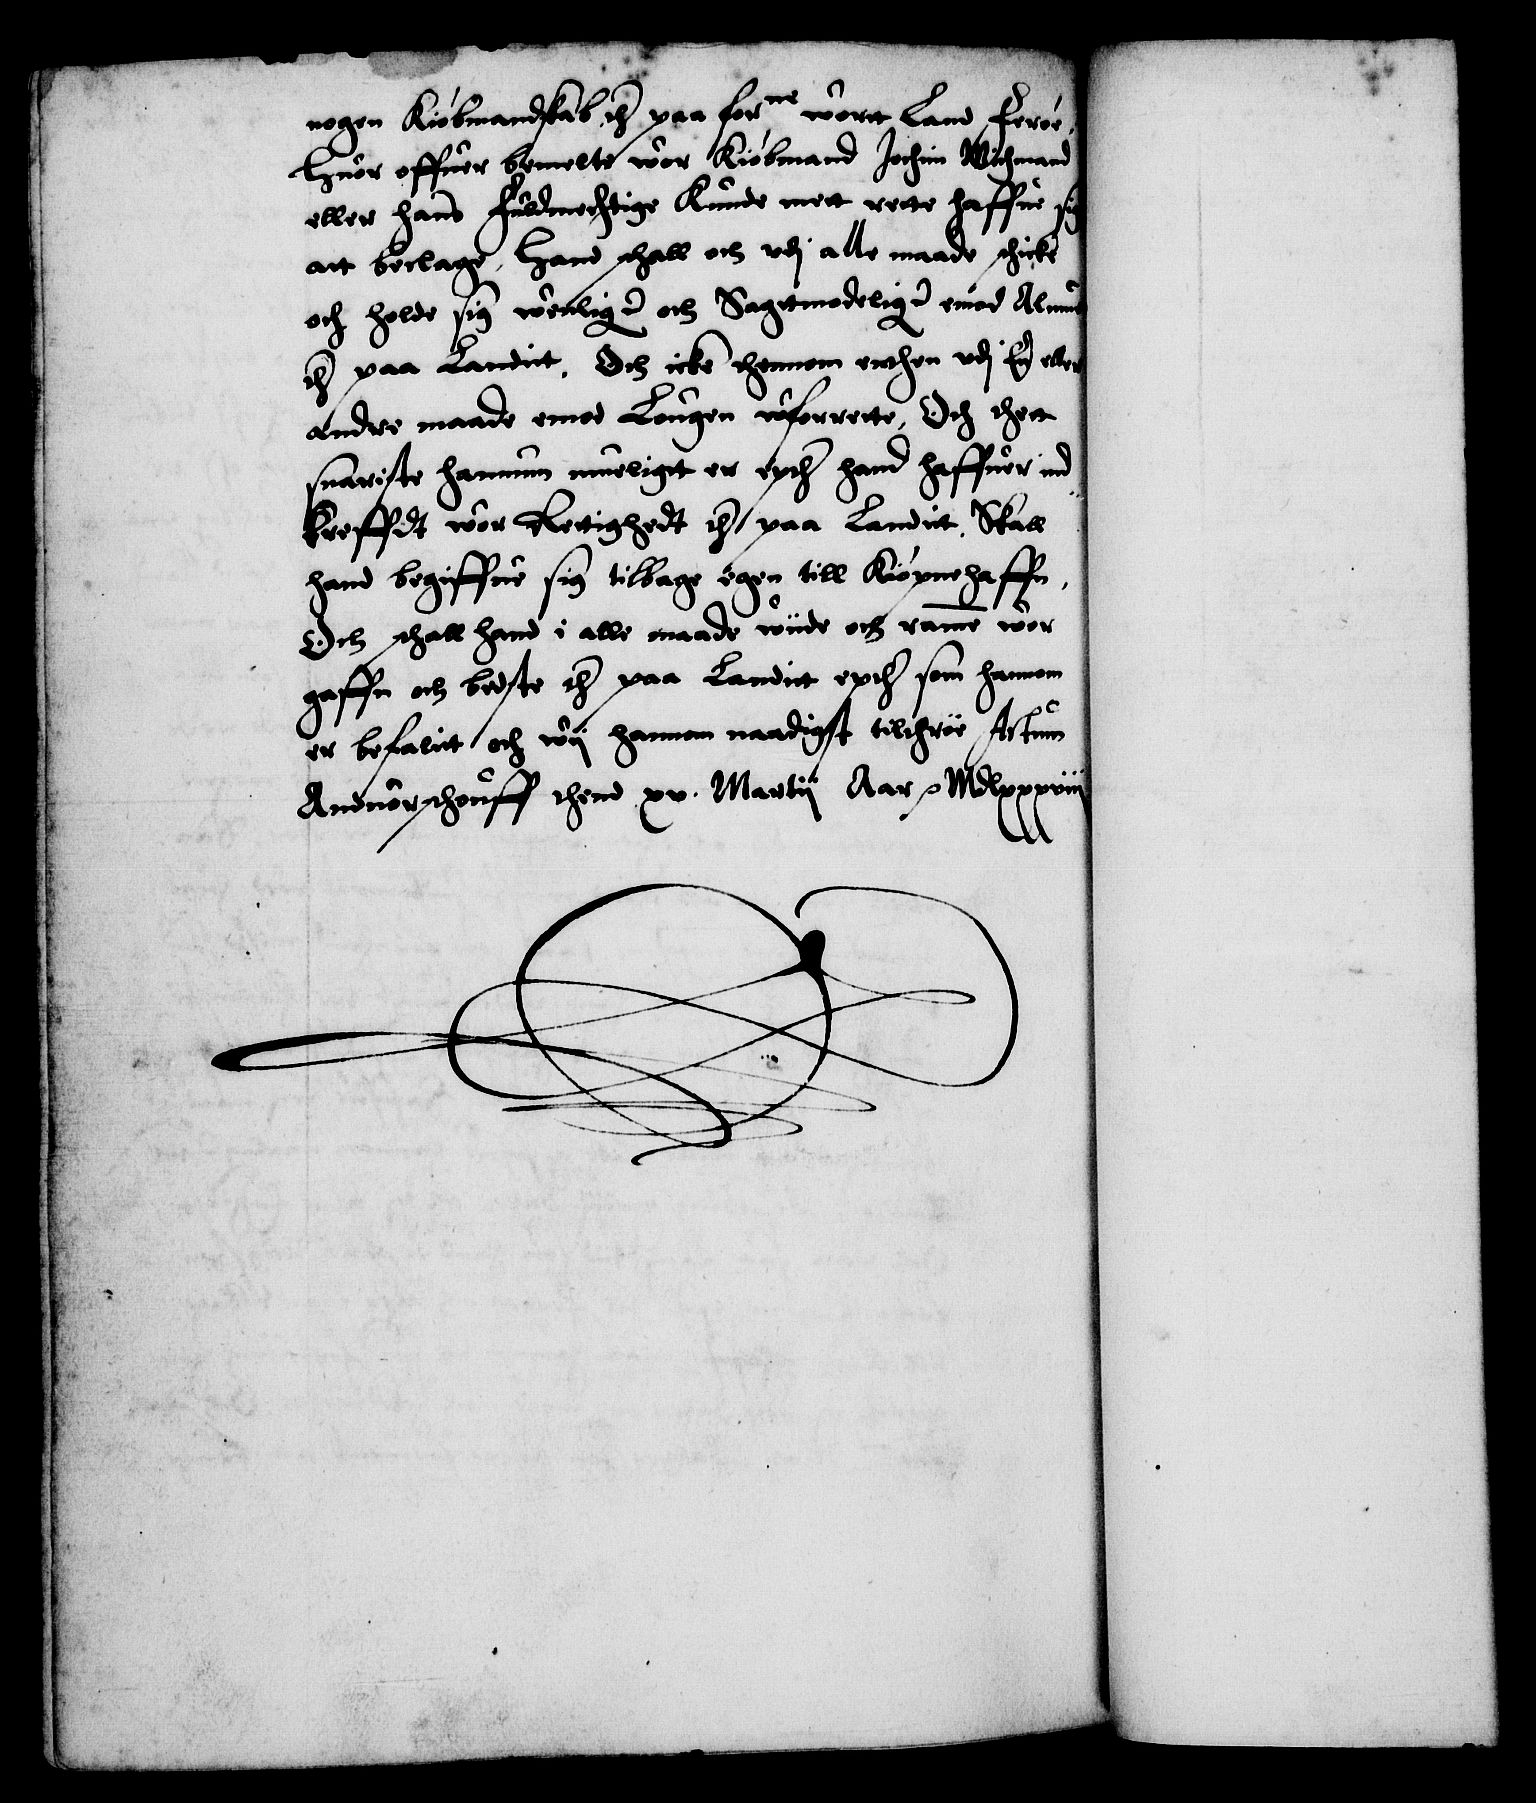 nogen Kiøbmandskab der paa forne wortt Land Ferøe,
Huor offuer bemelte wor Kiøbmand Jochim Wichmand
eller hans Fuldmechtige Kunde mett rette haffue sig
att beclage, Hand schall och udj alle maade schicke
och holde sig wenligen och Sagttmodeligen emod Almuen
der paa Landitt, Och icke thennom enthen udj En eller
andre maade emod Lougen wforrette, Och thett
snariste hannum mueligtt er epther hand haffuer ind
kreffdt wor Rettighedt der paa Landitt, Skall
hand begiffue sig tilbage igen till Kiøpnehaffn,
Och schall hand i alle maade wiide och ramme wor
gaffn och bedste der paa Landitt epther som hannom
er befalitt och wij hannom naadigst tilthroe Actum
Anduorschouff thend xv. Martij Aar MDlxxxviij